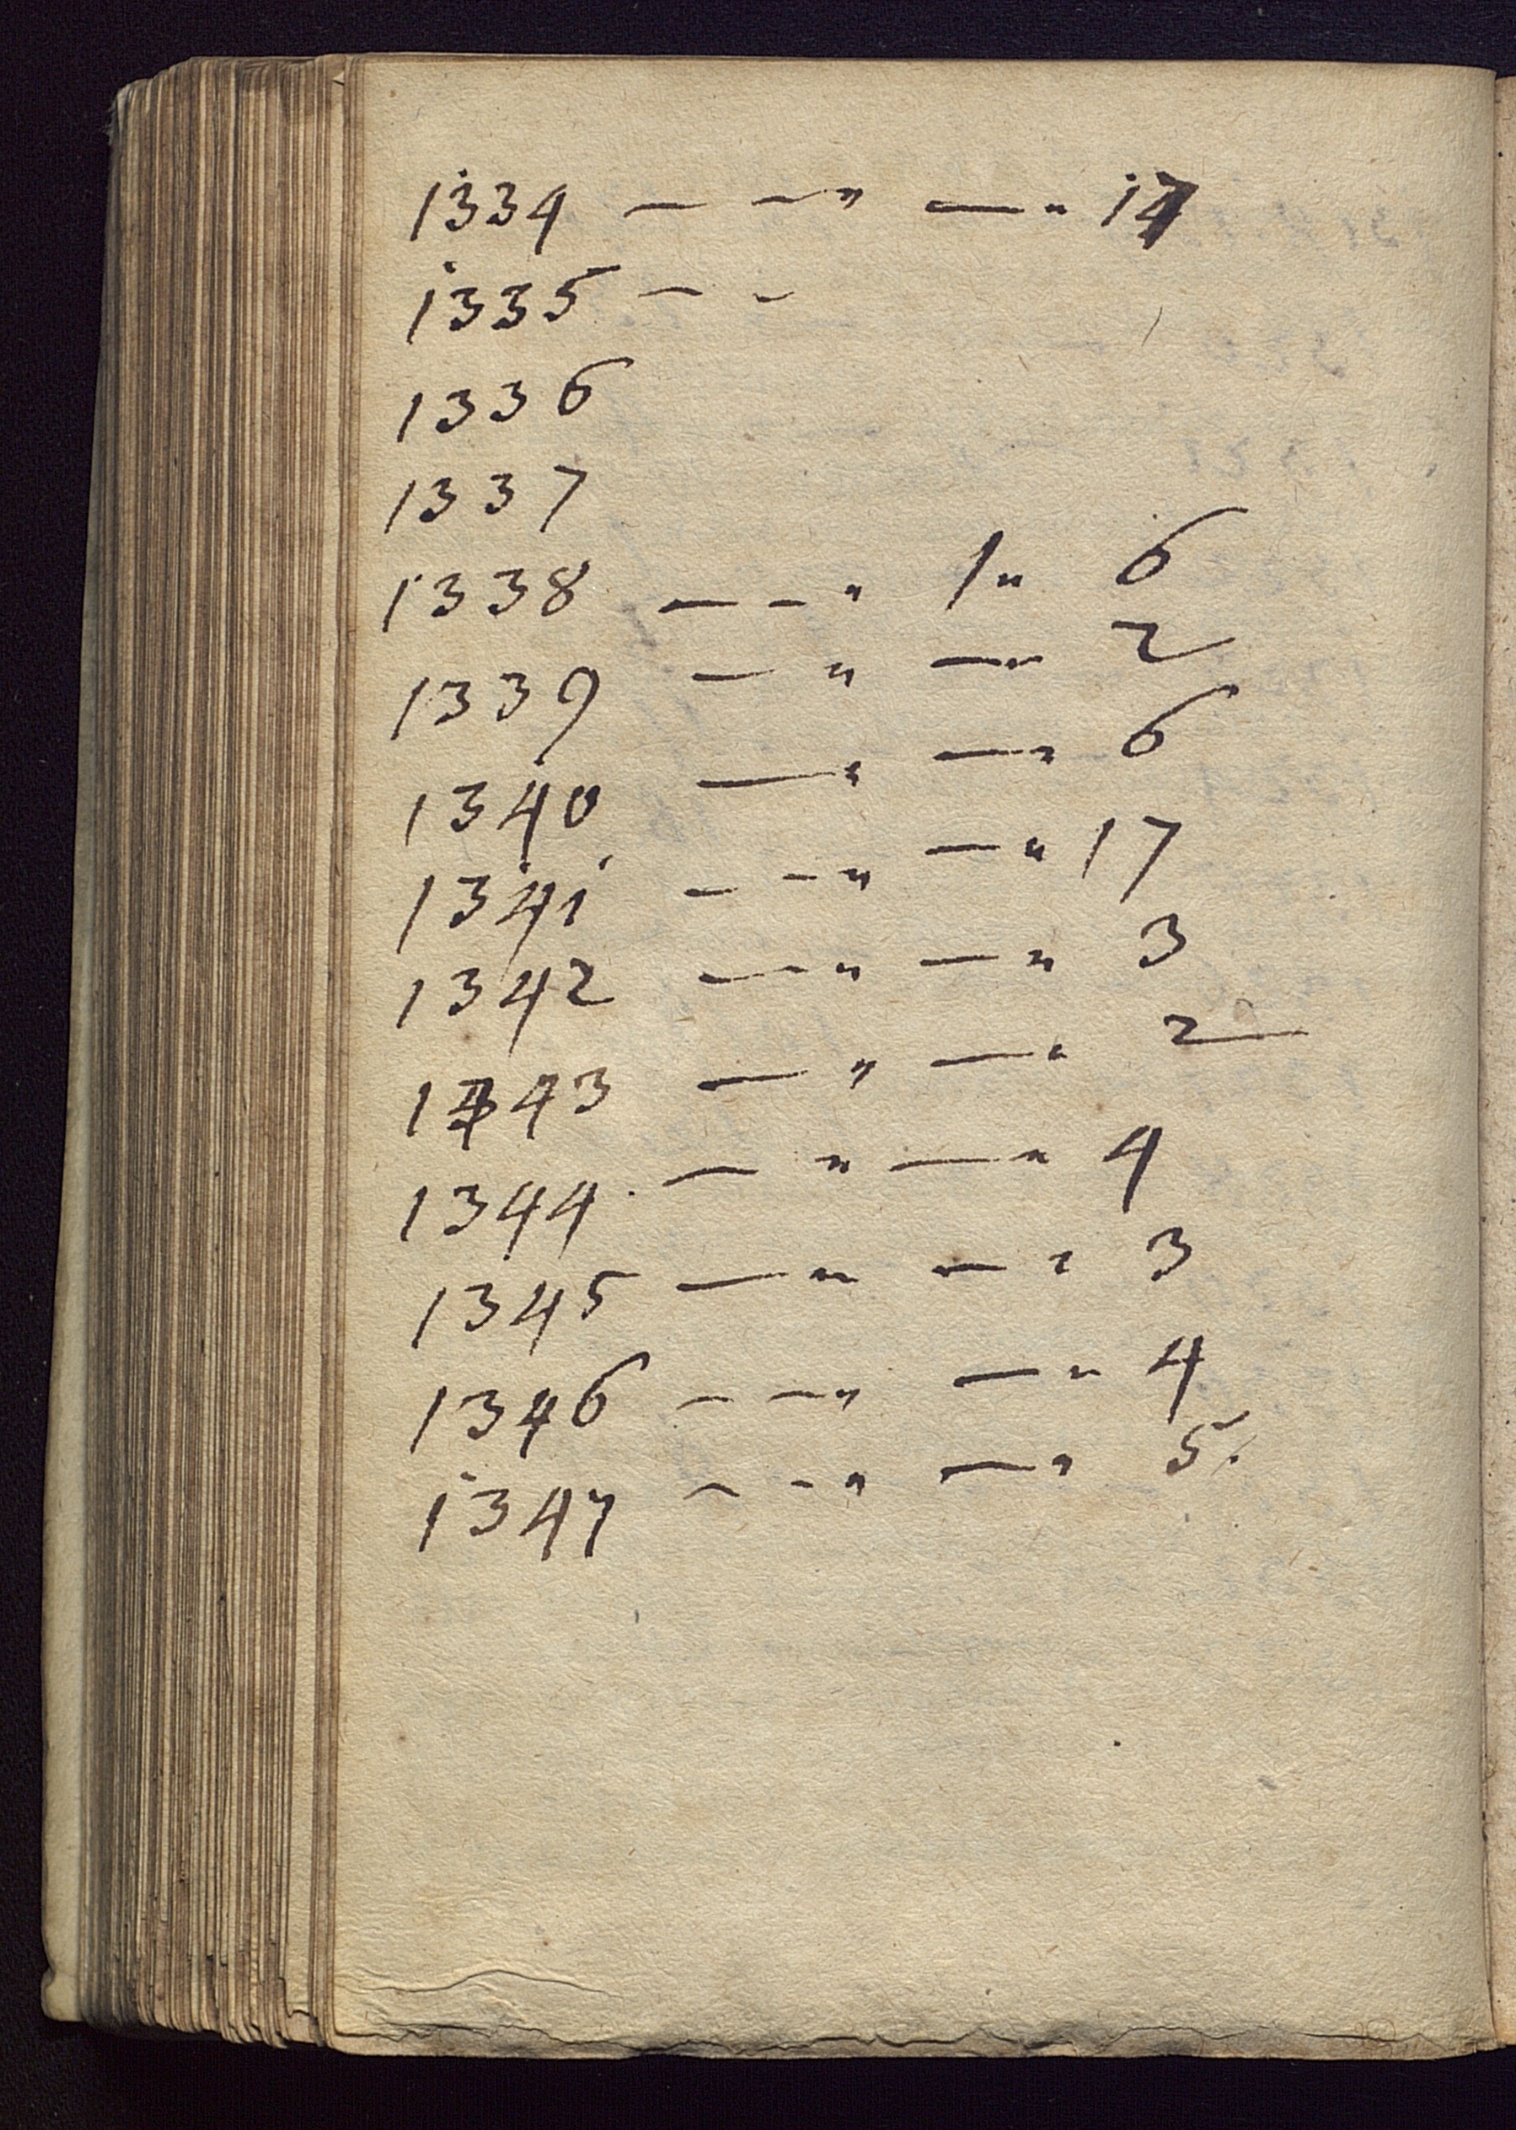 1334 — — " — " 17
1335 — -
1336
1337
1338 — - " 1 " 6
1339 — " — " 2
1340 — " — " 6
1341 - - " — " 17
1342 — - " — " 3
1343 — " — " 2
1344 . — " — " 4
1345 — " — " 3
1346 - — " — " 4
1347 - - " — " 5.